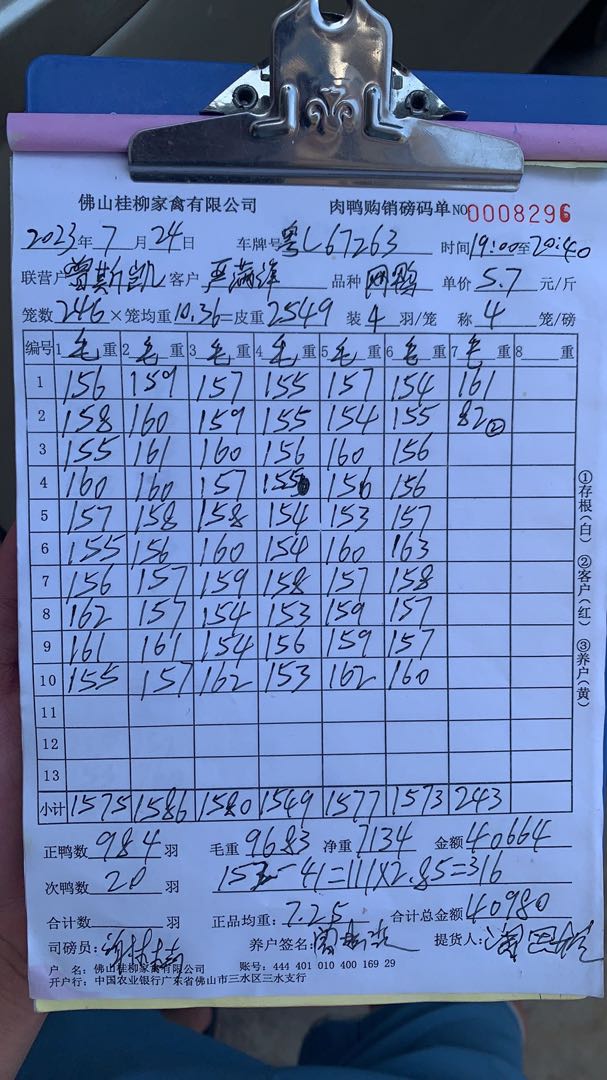 佛山桂柳家禽有限公司 肉鸭购销磅码单 NO 0008296
2023年7月24日 车牌号粤L67263 时间19:00至20:40
联营户曾斯凯 客户严满洋 品种 单价5.7元/斤
笼数246×笼均重10.36=皮重2549 装4羽/笼 称4笼/磅
编号 1毛重 2毛重 3毛重 4毛重 5毛重 6毛重 7毛重 8重
1 156 159 157 155 157 154 161
2 158 160 159 155 154 155 82②
3 155 161 160 156 160 156
4 160 160 157 155 156 156
5 157 158 158 154 153 157
6 155 156 160 154 160 163
7 156 157 159 158 157 158
8 162 157 154 153 159 157
9 161 161 154 156 159 157
10 155 157 162 153 162 160
11
12
13
小计 1575 1586 1580 1549 1577 1573 243
正鸭数984羽 毛重9683 净重7134 金额40664
次鸭数20羽 152-41=111×2.85=316
合计数羽 正品均重:7.25 合计总金额40980
司磅员: 养户签名: 提货人:
户 名:佛山桂柳家禽有限公司 账号:444 401 010 400 169 29
开户行:中国农业银行广东省佛山市三水区三水支行
①存根(白) ②客户(红) ③养户(黄)